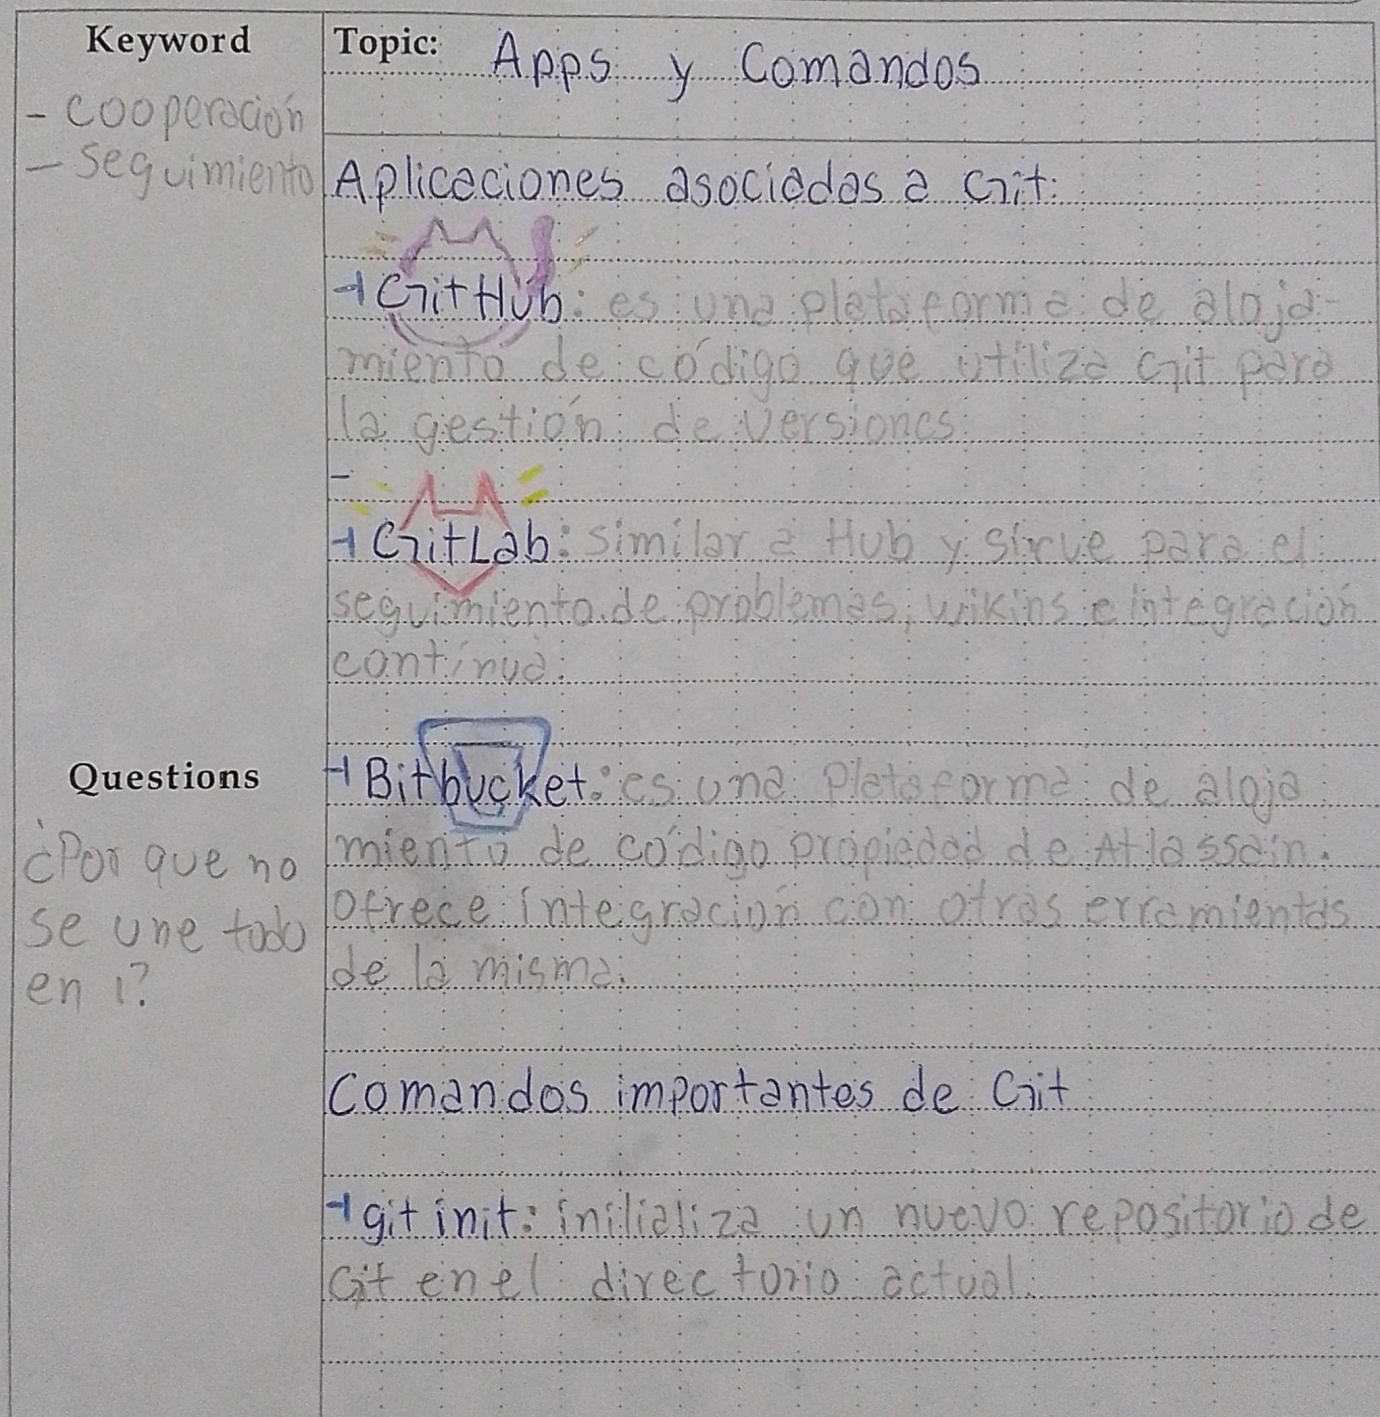 Keyword
Topic: Apps y Comandos
- Cooperación
- Seguimiento
Aplicaciones asociadas a Git:
GitHub: es una plataforma de aloja-
miento de código que utiliza Git para
la gestión de versiones.
GitLab: Similar a Hub y sirve para el
seguimiento de problemas, wikins e integración
contínua.
Questions
¿Por que no
se une todo
en 1?
Bitbucket: es una Plataforma de aloja
miento de código propiedad de Atlassain.
Ofrece integración con otras erramientas
de la misma.
Comandos importantes de Git
git init: inilializa un nuevo repositorio de
Git en el directorio actual.